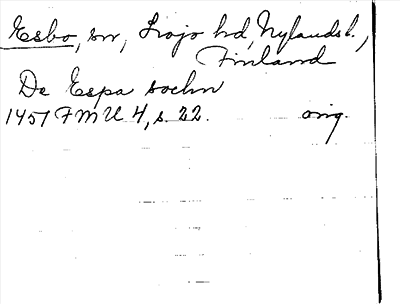 Esbo, sn, Lojo hd, Nylands l.,
Finland
De Espa sochn
1451 FMU 4, s. 22. orig.